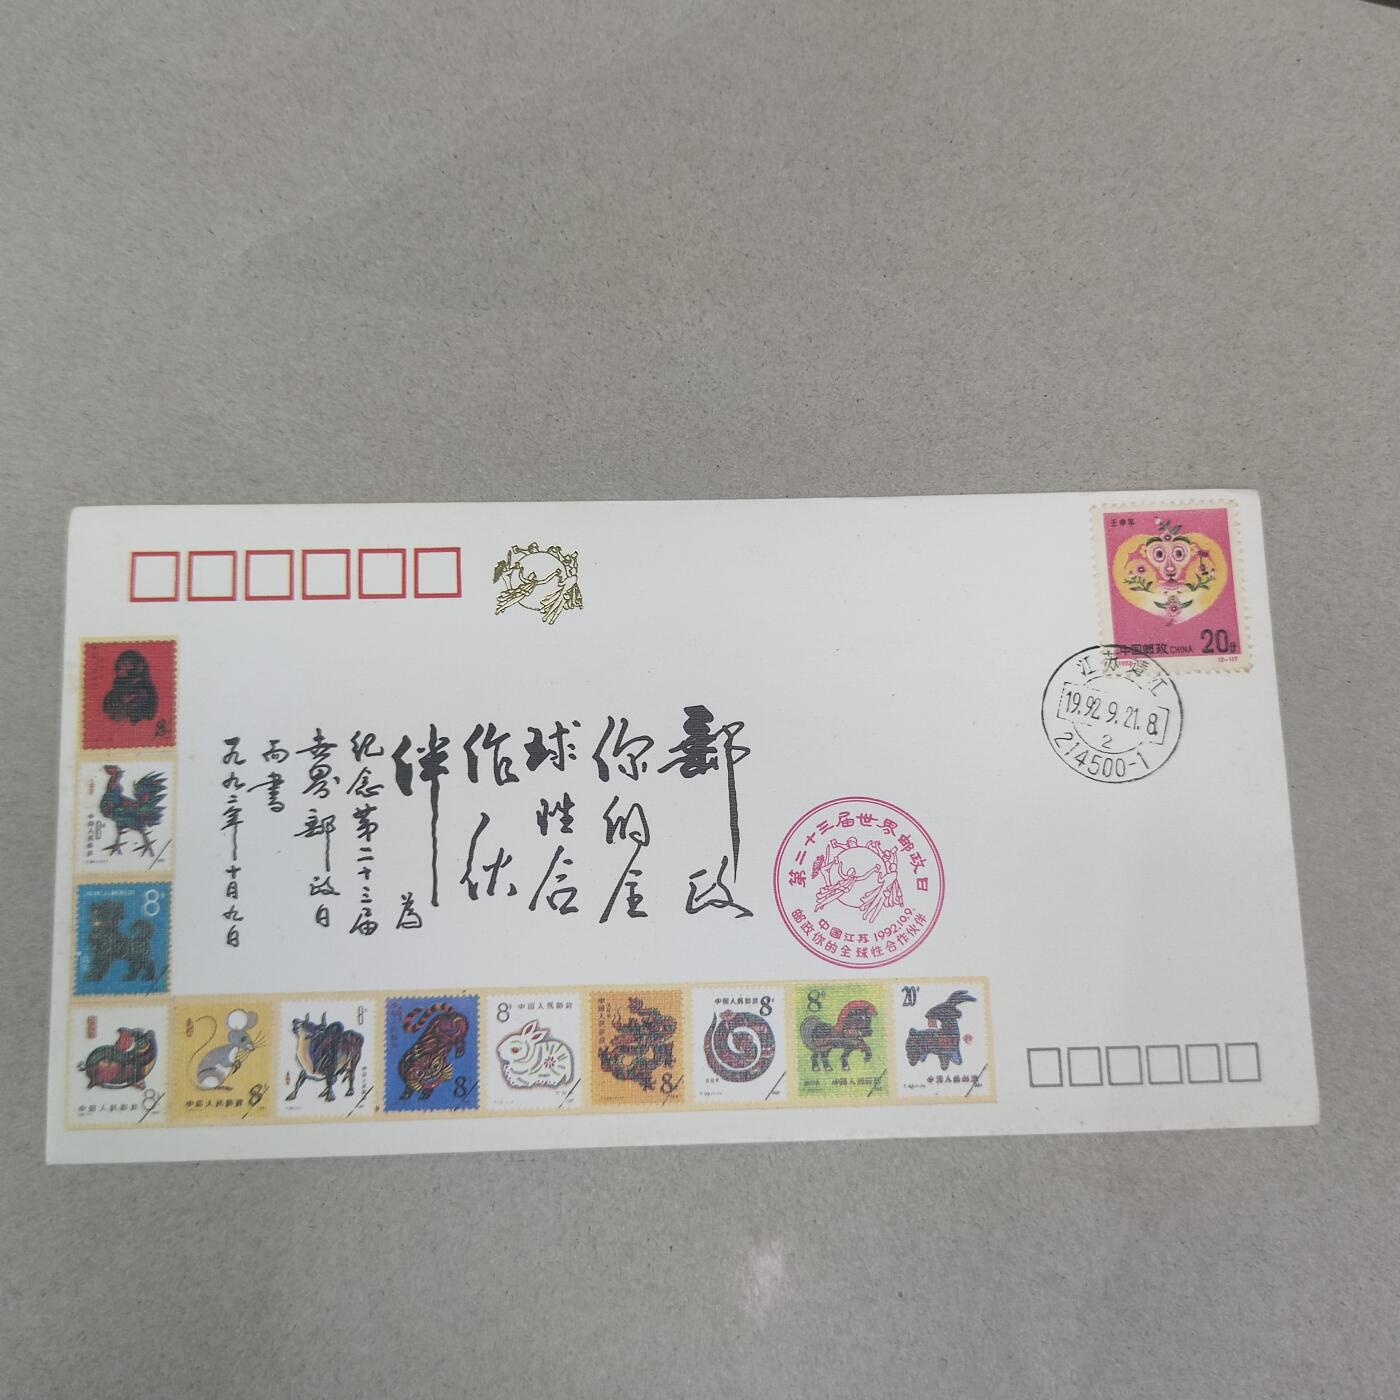 壬申年
中国邮政 CHINA 20分
1992
(2-1)T
江苏靖江
19.92.9.21.8.
2
214500-1
邮政
你的全
球性合
作伙
伴 为
纪念第二十三届
世界邮政日
而书
一九九二年十月九日
第二十三届世界邮政日
中国江苏 1992.10.9.
邮政你的全球性合作伙伴
8
8
中国人民邮政
8
中国人民邮政 8
中国人民邮政 8分
8
8
8分 中国人民邮政
中国人民邮政 8
中国人民邮政 8
8分 中国人民邮政
20分 中国人民邮政